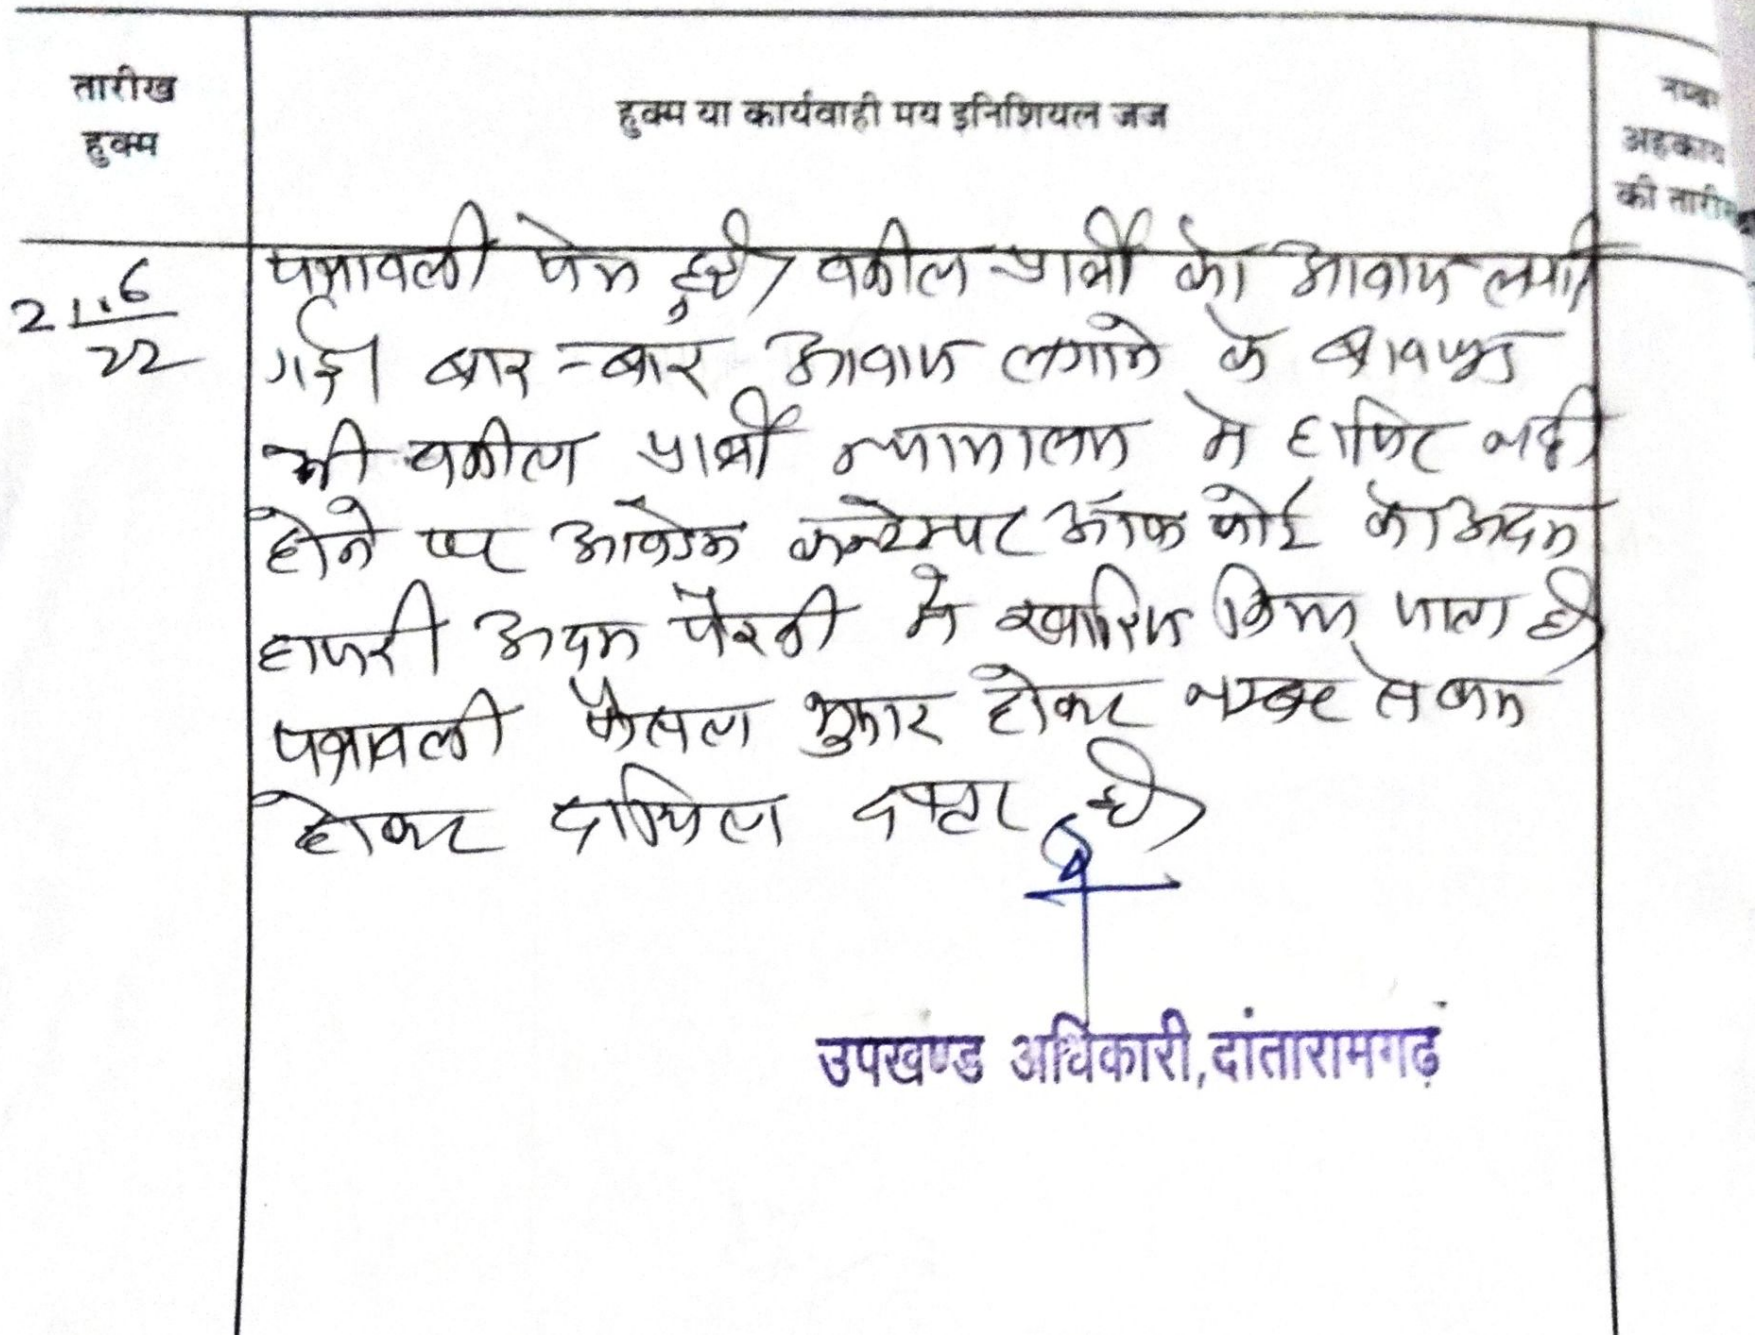 तारीख
हुक्म
हुक्म या कार्यवाही मय इनिशियल जज
अहकाम
की तारीख
21.6
22
पत्रावली पेश हुई, वकील प्रार्थी को आवाज लगाई
गई। बार-बार आवाज लगाने के बावजूद
भी वकील प्रार्थी न्यायालय मे हाजिर नही
होने पर आवेदन कन्टेम्पट ऑफ कोर्ट को अदम
हाजरी अदम पैरवी मे खारिज किया जाता है
पत्रावली फैसला शुमार होकर नम्बर से कम
होकर दाखिल दफ्तर हो
उपखण्ड अधिकारी, दांतारामगढ़